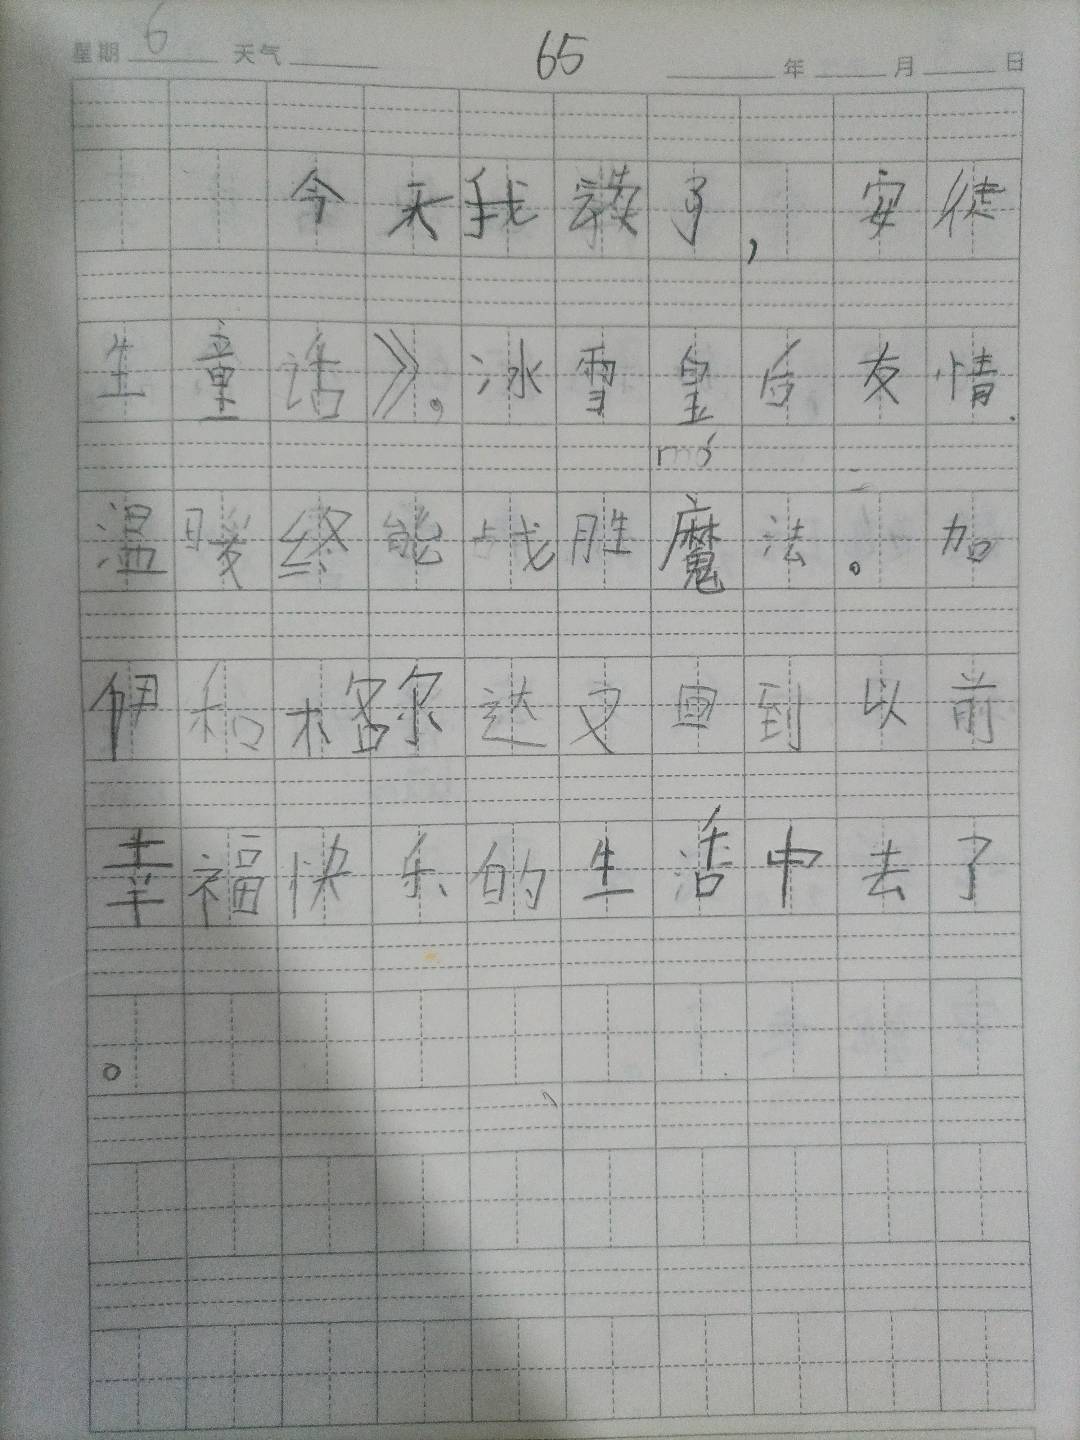 星期 6 天气 65 年 月 日
今天我读了, 安徒
生童话》。冰雪皇后友情.
mó
温暖终能战胜魔法。加
伊和格尔达又回到以前
幸福快乐的生活中去了
。